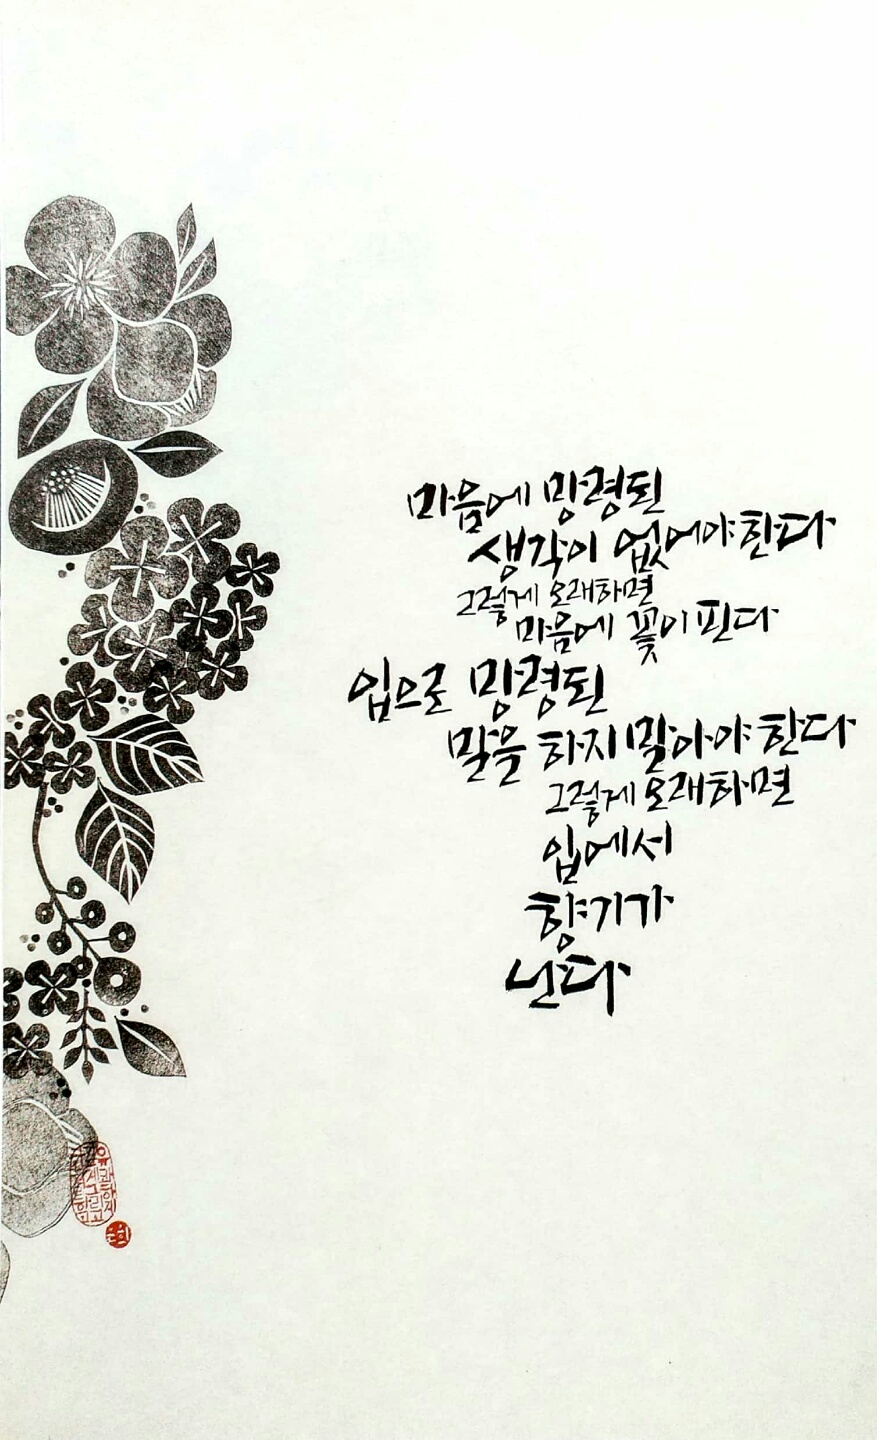 마음에 망령된
생각이 없어야한다
그렇게 오래하면
마음에 꽃이 핀다
입으로 망령된
말을 하지말아야한다
그렇게 오래하면
입에서
향기가
난다